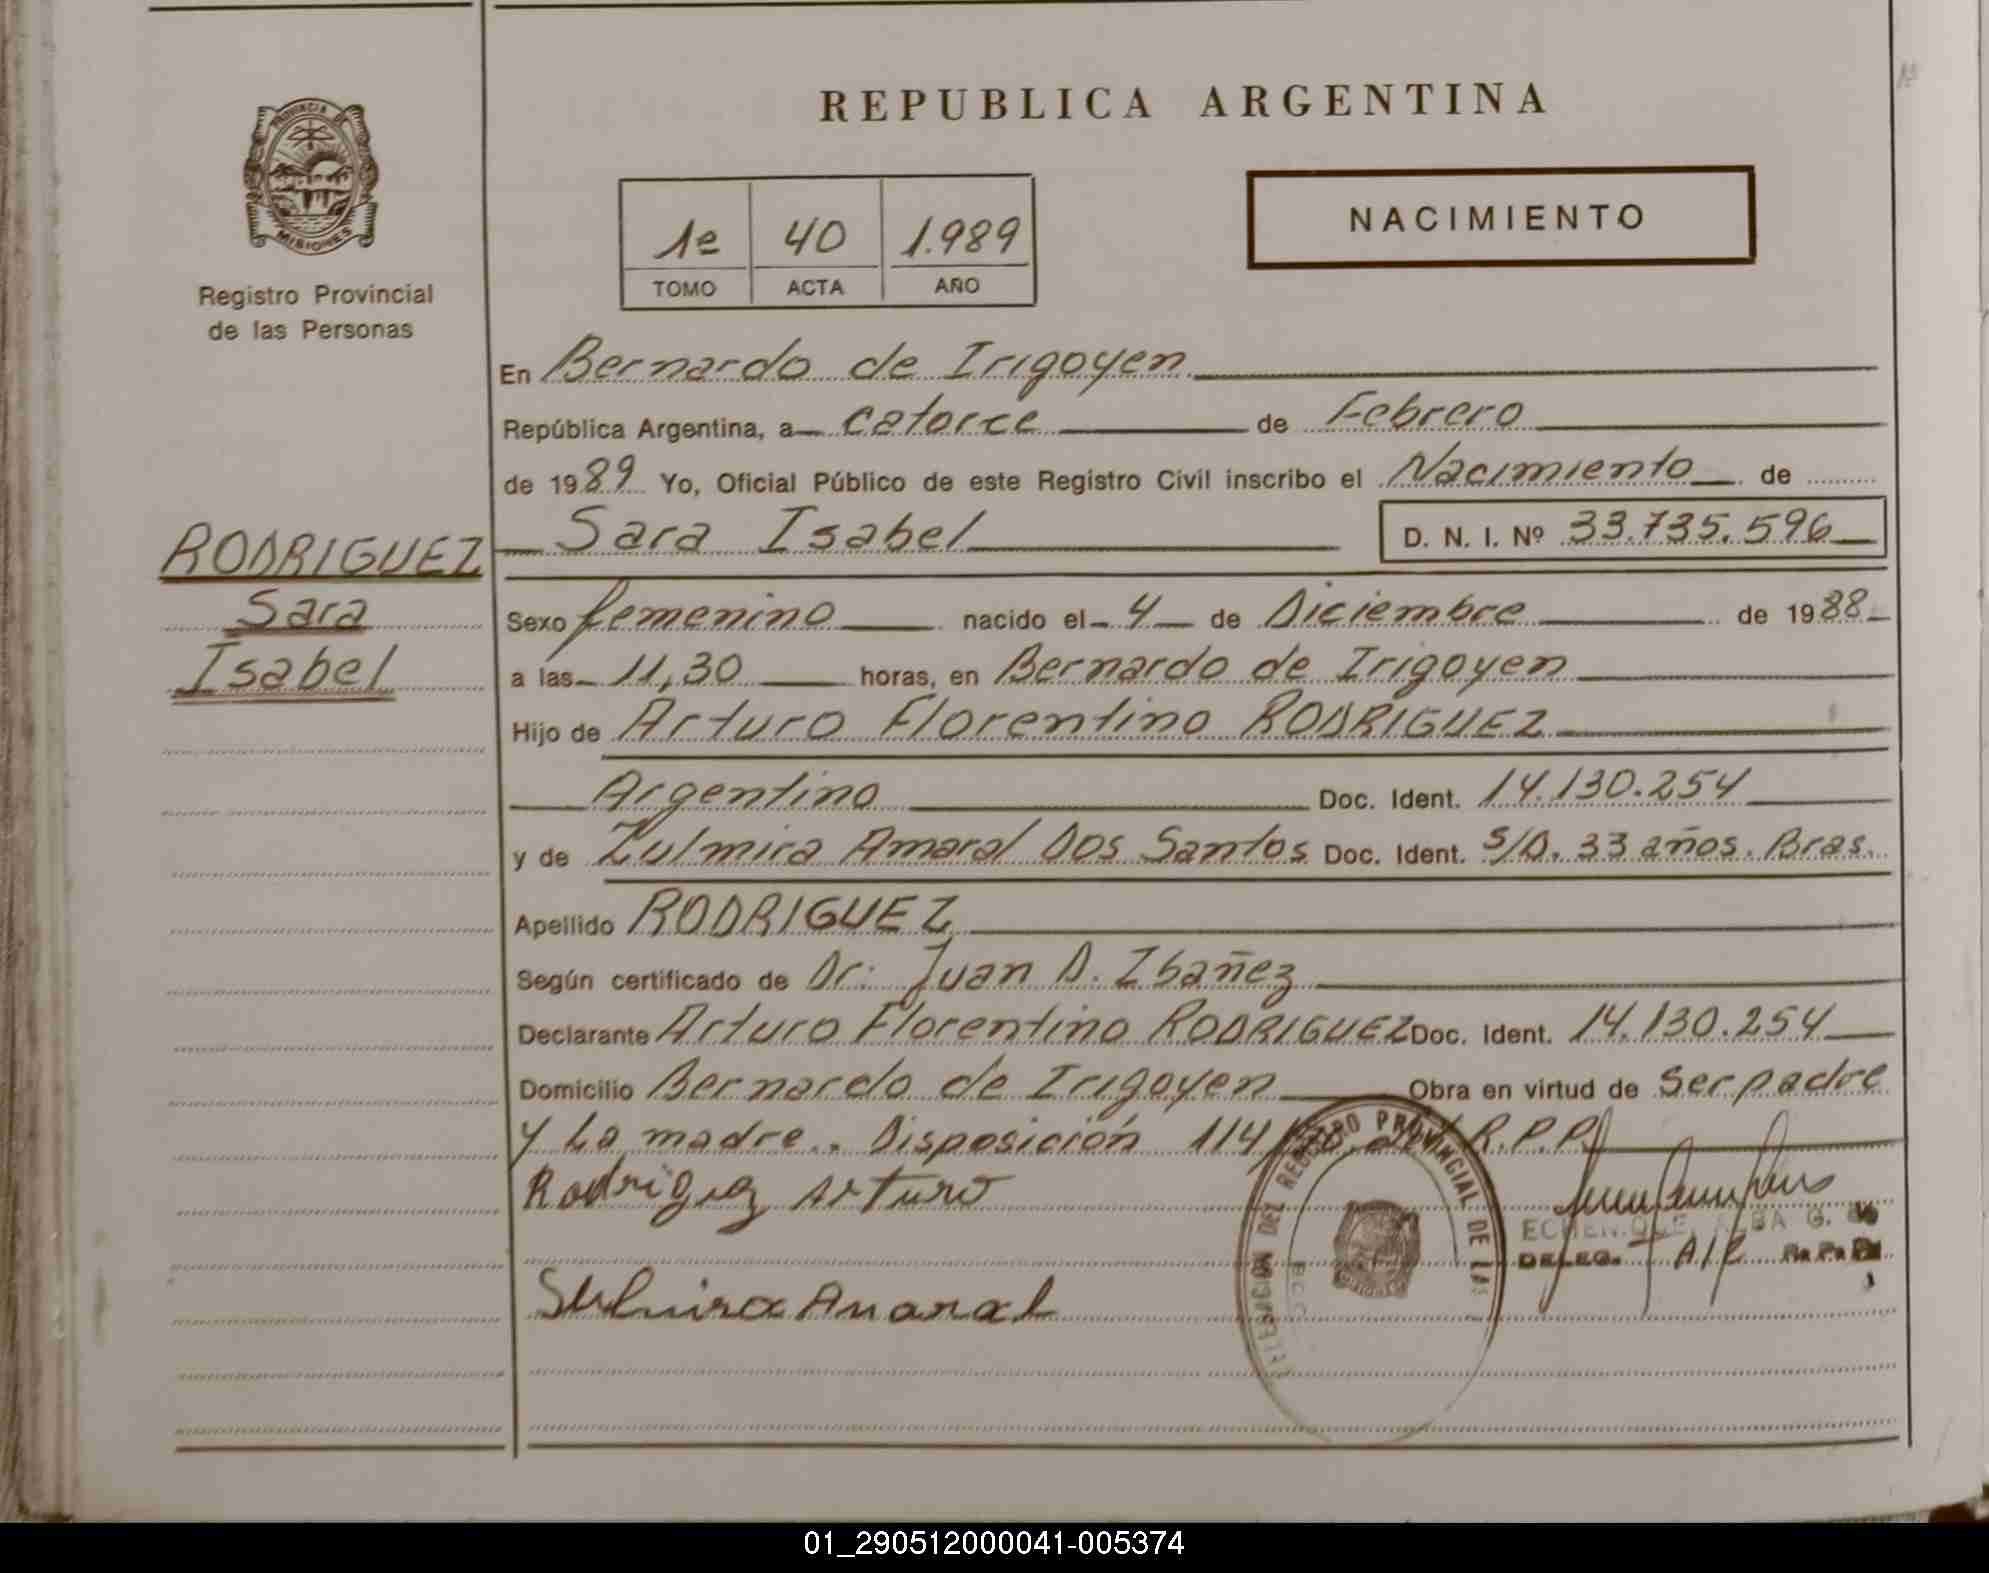 REPUBLICA ARGENTINA
PROVINCIA DE
MISIONES
Registro Provincial
de las Personas
1e 40 1.989
TOMO ACTA AÑO
NACIMIENTO
RODRIGUEZ
Sara
Isabel
En Bernardo de Irigoyen
República Argentina, a catorce de Febrero
de 1989 Yo, Oficial Público de este Registro Civil inscribo el Nacimiento de
Sara Isabel D. N. I. Nº 33.735.596
Sexo femenino nacido el 4 de Diciembre de 1988
a las 11,30 horas, en Bernardo de Irigoyen
Hijo de Arturo Florentino RODRIGUEZ
Argentino Doc. Ident. 14.130.254
y de Zulmira Amaral Dos Santos Doc. Ident. S/D. 33 años. Bras.
Apellido RODRIGUEZ
Según certificado de Dr: Juan D. Ibañez
Declarante Arturo Florentino RODRIGUEZ Doc. Ident. 14.130.254
Domicilio Bernardo de Irigoyen Obra en virtud de Ser padre
y La madre.. Disposición 114/ R.P.P.
Rodriguez Arturo
DELEGACION DEL REGISTRO PROVINCIAL DE LAS
ALBA G.
DELEG. A/C
Sulmira Amaral
01_290512000041-005374